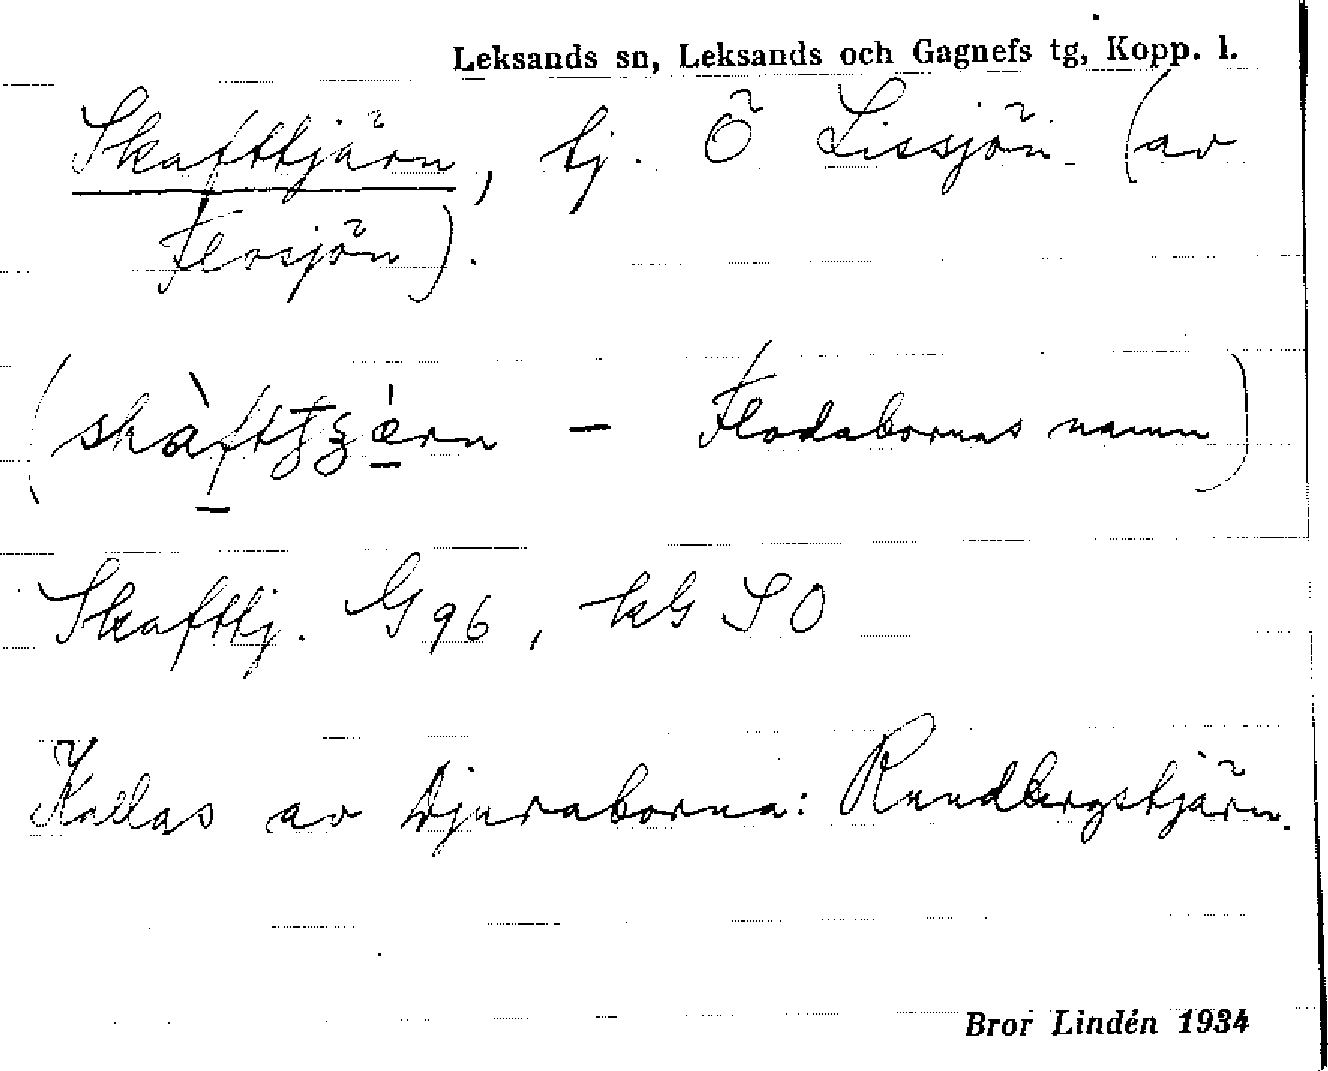 Leksands sn, Leksands och Gagnefs tg, Kopp. l.
Skafttjärn, tj. Ö Lissjön (av
Flosjön).
– Flodabornas namn)
Skafttj. G 96, kG SO
Kallas av Djuraborna: Rundbergstjärn.
Bror Lindén 1934